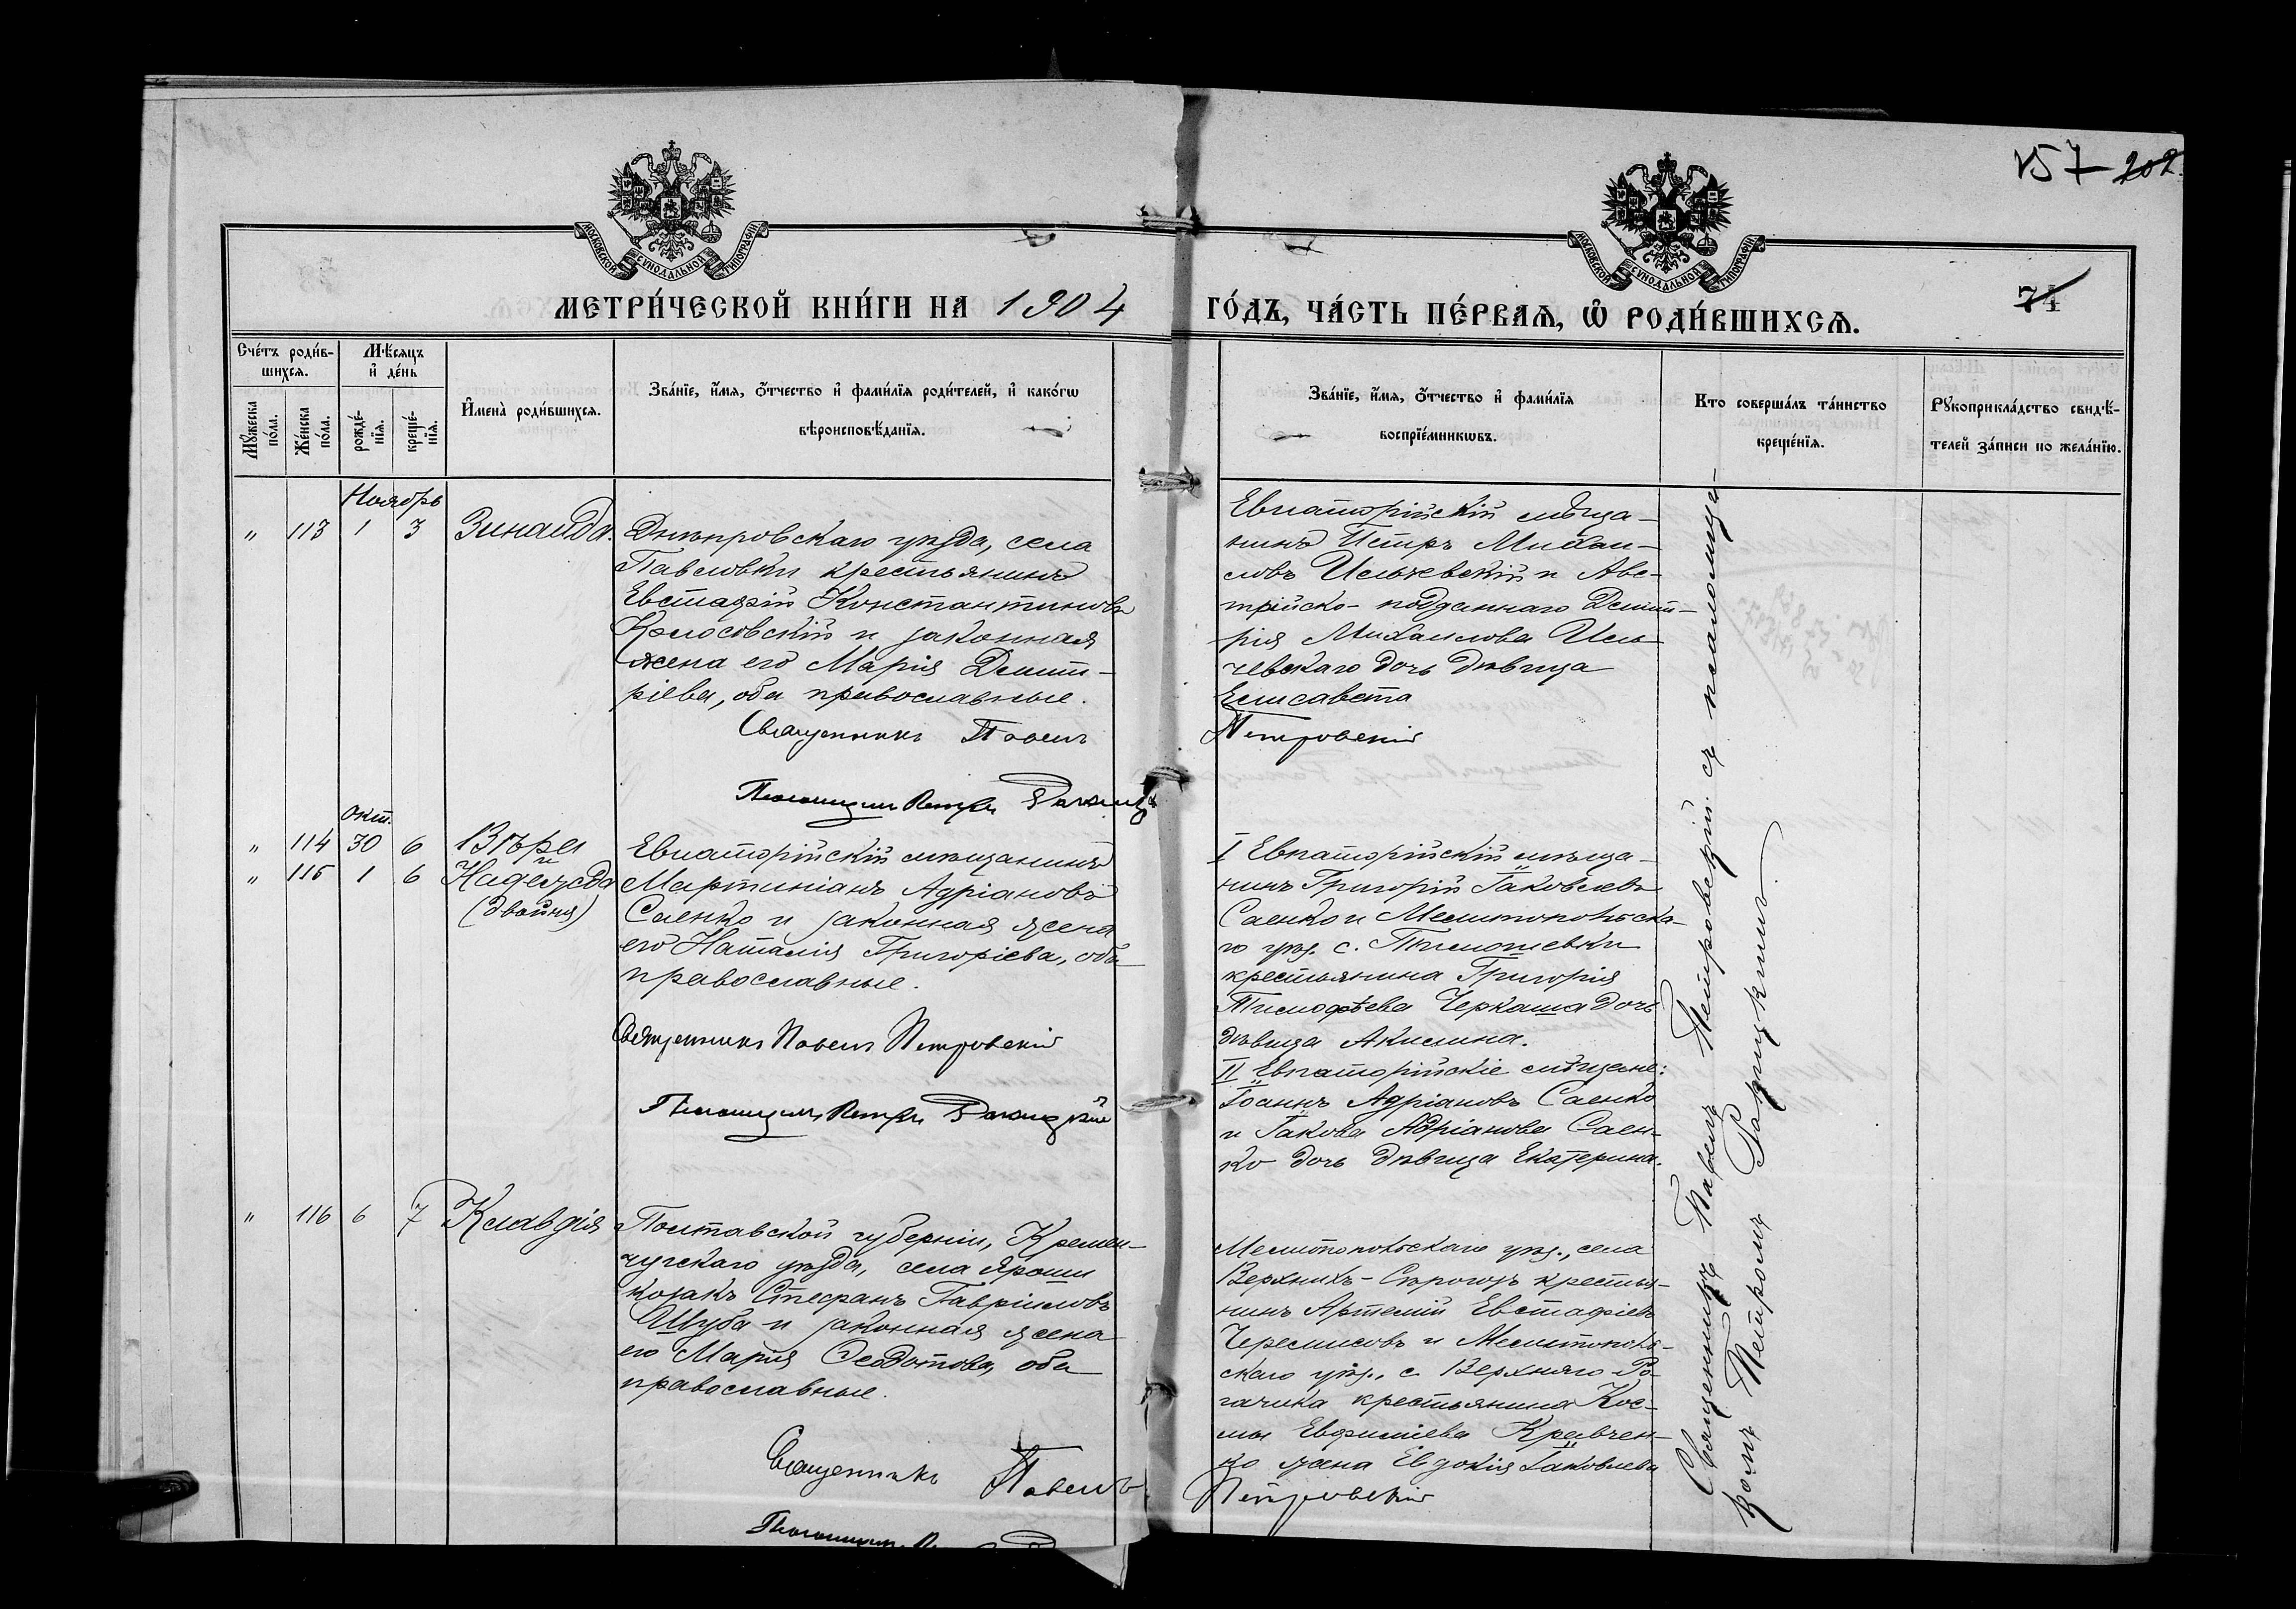 157 202
МОСКОВСКОЙ СУНОДАЛЬНОЙ ТИПОГРАФІИ
МОСКОВСКОЙ СУНОДАЛЬНОЙ ТИПОГРАФІИ
74
МЕТРИ́ЧЕСКОЙ КНИ́ГИ НА 1904
ГО́ДЪ, ЧА́СТЬ ПЕ́РВАѦ, Ѽ РОДИ́ВШИХСѦ.
Сче́тъ роди́в-
шихсѧ.
Мѣ́сѧцъ
и҆ де́нь
Мꙋ́жеска
по́ла.
Же́нска
по́ла.
рожде́-
нїѧ.
креще́-
нїѧ.
И҆мена̀ роди́вшихсѧ.
Зва́нїе, и҆́мѧ, ѻ҆́тчество и҆ фами́лїѧ роди́телей, и҆ како́гѡ
вѣроисповѣ́данїѧ.
Зва́нїе, и҆́мѧ, ѻ҆́тчество и҆ фами́лїѧ
воспрїе́мникѡвъ.
Кто соверша́лъ та́инство
креще́нїѧ.
Рꙋкоприкла́дство свидѣ́-
телей за́писи по жела́нїю.
Ноябрь
" 113 1 3 Зинаида.
Днѣпровскаго уѣзда, села
Павловки крестьянинъ
Евстафій Константиновъ
Колосовскій и законная
жена его Марія Димит-
ріева, оба православные.
Священникъ Павелъ
Псаломщикъ Петръ
Евпаторійскій мѣща-
нинъ Петръ Михаи-
ловъ Ильчевскій и Авс-
трійско-подданнаго Димит-
рія Михаилова Иль-
чевскаго дочь дѣвица
Елисавета
Петровскій
Окт.
" 114 30 6 Вѣра
и
" 115 1 6 Надежда
(двойня)
Евпаторійскій мѣщанинъ
Мартиніанъ Адріановъ
Саенко и законная жена
его Наталія Григоріева, оба
православные.
Священникъ Павелъ Петровскій
Псаломщикъ Петръ Ракицкій
I Евпаторійскій мѣща-
нинъ Григорій Іаковлевъ
Саенко и Мелитопольска-
го уѣз. с. Тимошевки
крестьянина Григорія
Тимофѣева Черкаша дочь
дѣвица Акилина.
II Евпаторійскіе мѣщане:
Іоаннъ Адріановъ Саенко
и Іакова Адріанова Саен-
ко дочь дѣвица Екатерина.
" 116 6 7 Клавдія
Полтавской губерніи, Кремен-
чугскаго уѣзда, села Ярошы
козакъ Стефанъ Гавріиловъ
Шуба и законная жена
его Марія Ѳеодотова, оба
православные.
Священникъ Павелъ
Псаломщикъ
Мелитопольскаго уѣз., села
Верхнихъ-Сѣрогозъ крестья-
нинъ Артемій Евстафіевъ
Черемисовъ и Мелитополь-
скаго уѣз., с. Верхняго Ро-
гачика крестьянина Кос-
мы Евфиміева Кравчен-
ко жена Евдокія Іаковлева
Петровскій
Священникъ Павелъ Петровскій съ псаломщи-
комъ Петромъ Ракицкимъ.